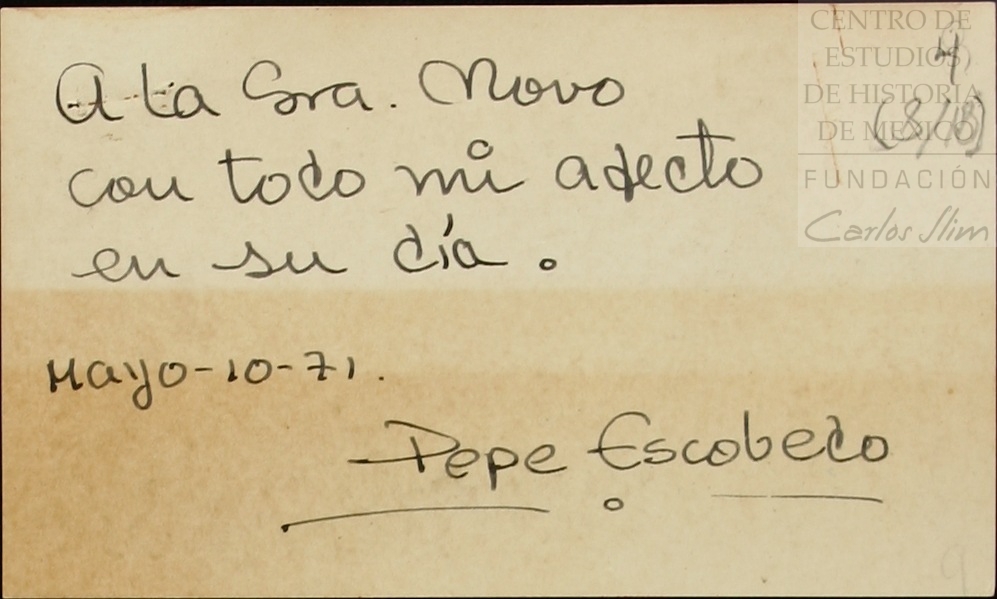 CENTRO DE
ESTUDIOS
DE HISTORIA
DE MEXICO
FUNDACIÓN
Carlos Slim
4
A la Sra. Novo
con todo mi afecto
en su día.
Mayo-10-71.
Pepe Escobedo